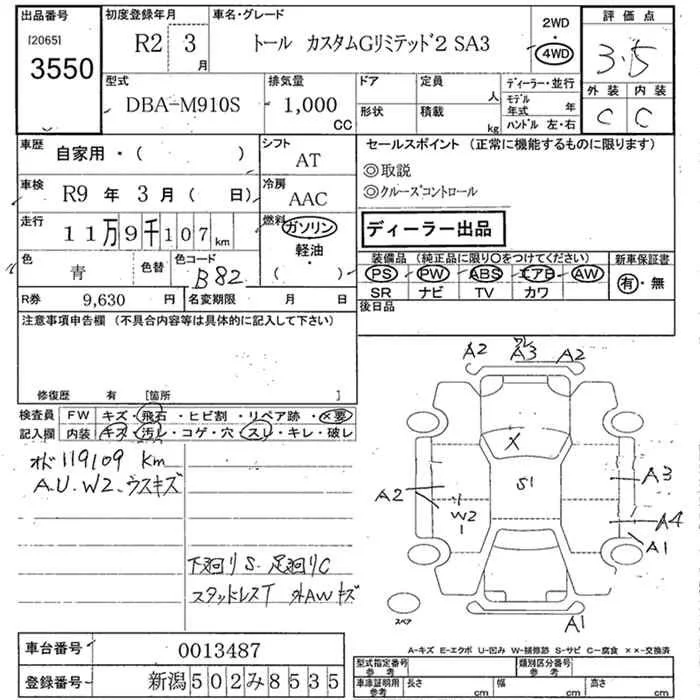 出品番号
[2065]
3550
初度登録年月
R2 3 月
車名・グレード
トール カスタムGリミテッド2 SA3
2WD
・
4WD
評価点
3.5
外装 内装
C C
型式
DBA-M910S
排気量
1,000 CC
ドア
定員 人
形状
積載 kg
ディーラー・並行
モデル年式 年
ハンドル 左・右
車歴
自家用・( )
シフト
AT
車検
R9 年 3 月 ( 日)
冷房
AAC
走行
11万9千107km
燃料
ガソリン
・
軽油
・
( )
色
青
色替
色コード
B82
R券 9,630 円
名変期限 月 日
セールスポイント (正常に機能するものに限ります)
◎取説
◎クルーズコントロール
ディーラー出品
装備品 (純正品に限り○をつけてください)
PS PW ABS エアB AW
SR ナビ TV カワ
新車保証書
有・無
後日品
注意事項申告欄 (不具合内容等は具体的に記入して下さい)
修復歴 有 [箇所 ]
検査員記入欄
FW キズ・飛石・ヒビ割・リペア跡・×要
内装 キズ・汚レ・コゲ・穴・スレ・キレ・破レ
オド 119109 km
A.U.W2.ウスキズ
下廻りS.足廻りC
スタッドレスT 外AWキズ
A2 A3 A2
X
S1
A2
W2
A3
A4
A1
A1
スペア
A-キズ E-エクボ U-凹み W-補修跡 S-サビ C-腐食 ××-交換済
車台番号 0013487
登録番号 新潟502み8535
型式指定番号 参考
類別区分番号 参考
車庫証明用 参考 長さ cm 幅 cm 高さ cm